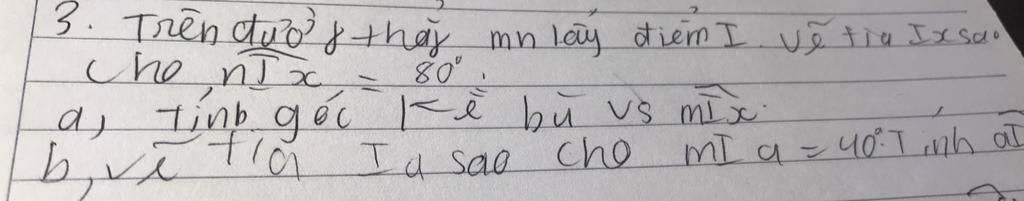 3. Trên đườ⁣ng thẳng mn lấy điểm I. Vẽ tia Ix sao
Cho nIx = 80°.
a, tính góc kề bù vs mIx.
b, vẽ tia Ia sao cho mIa = 40°. Tính aI